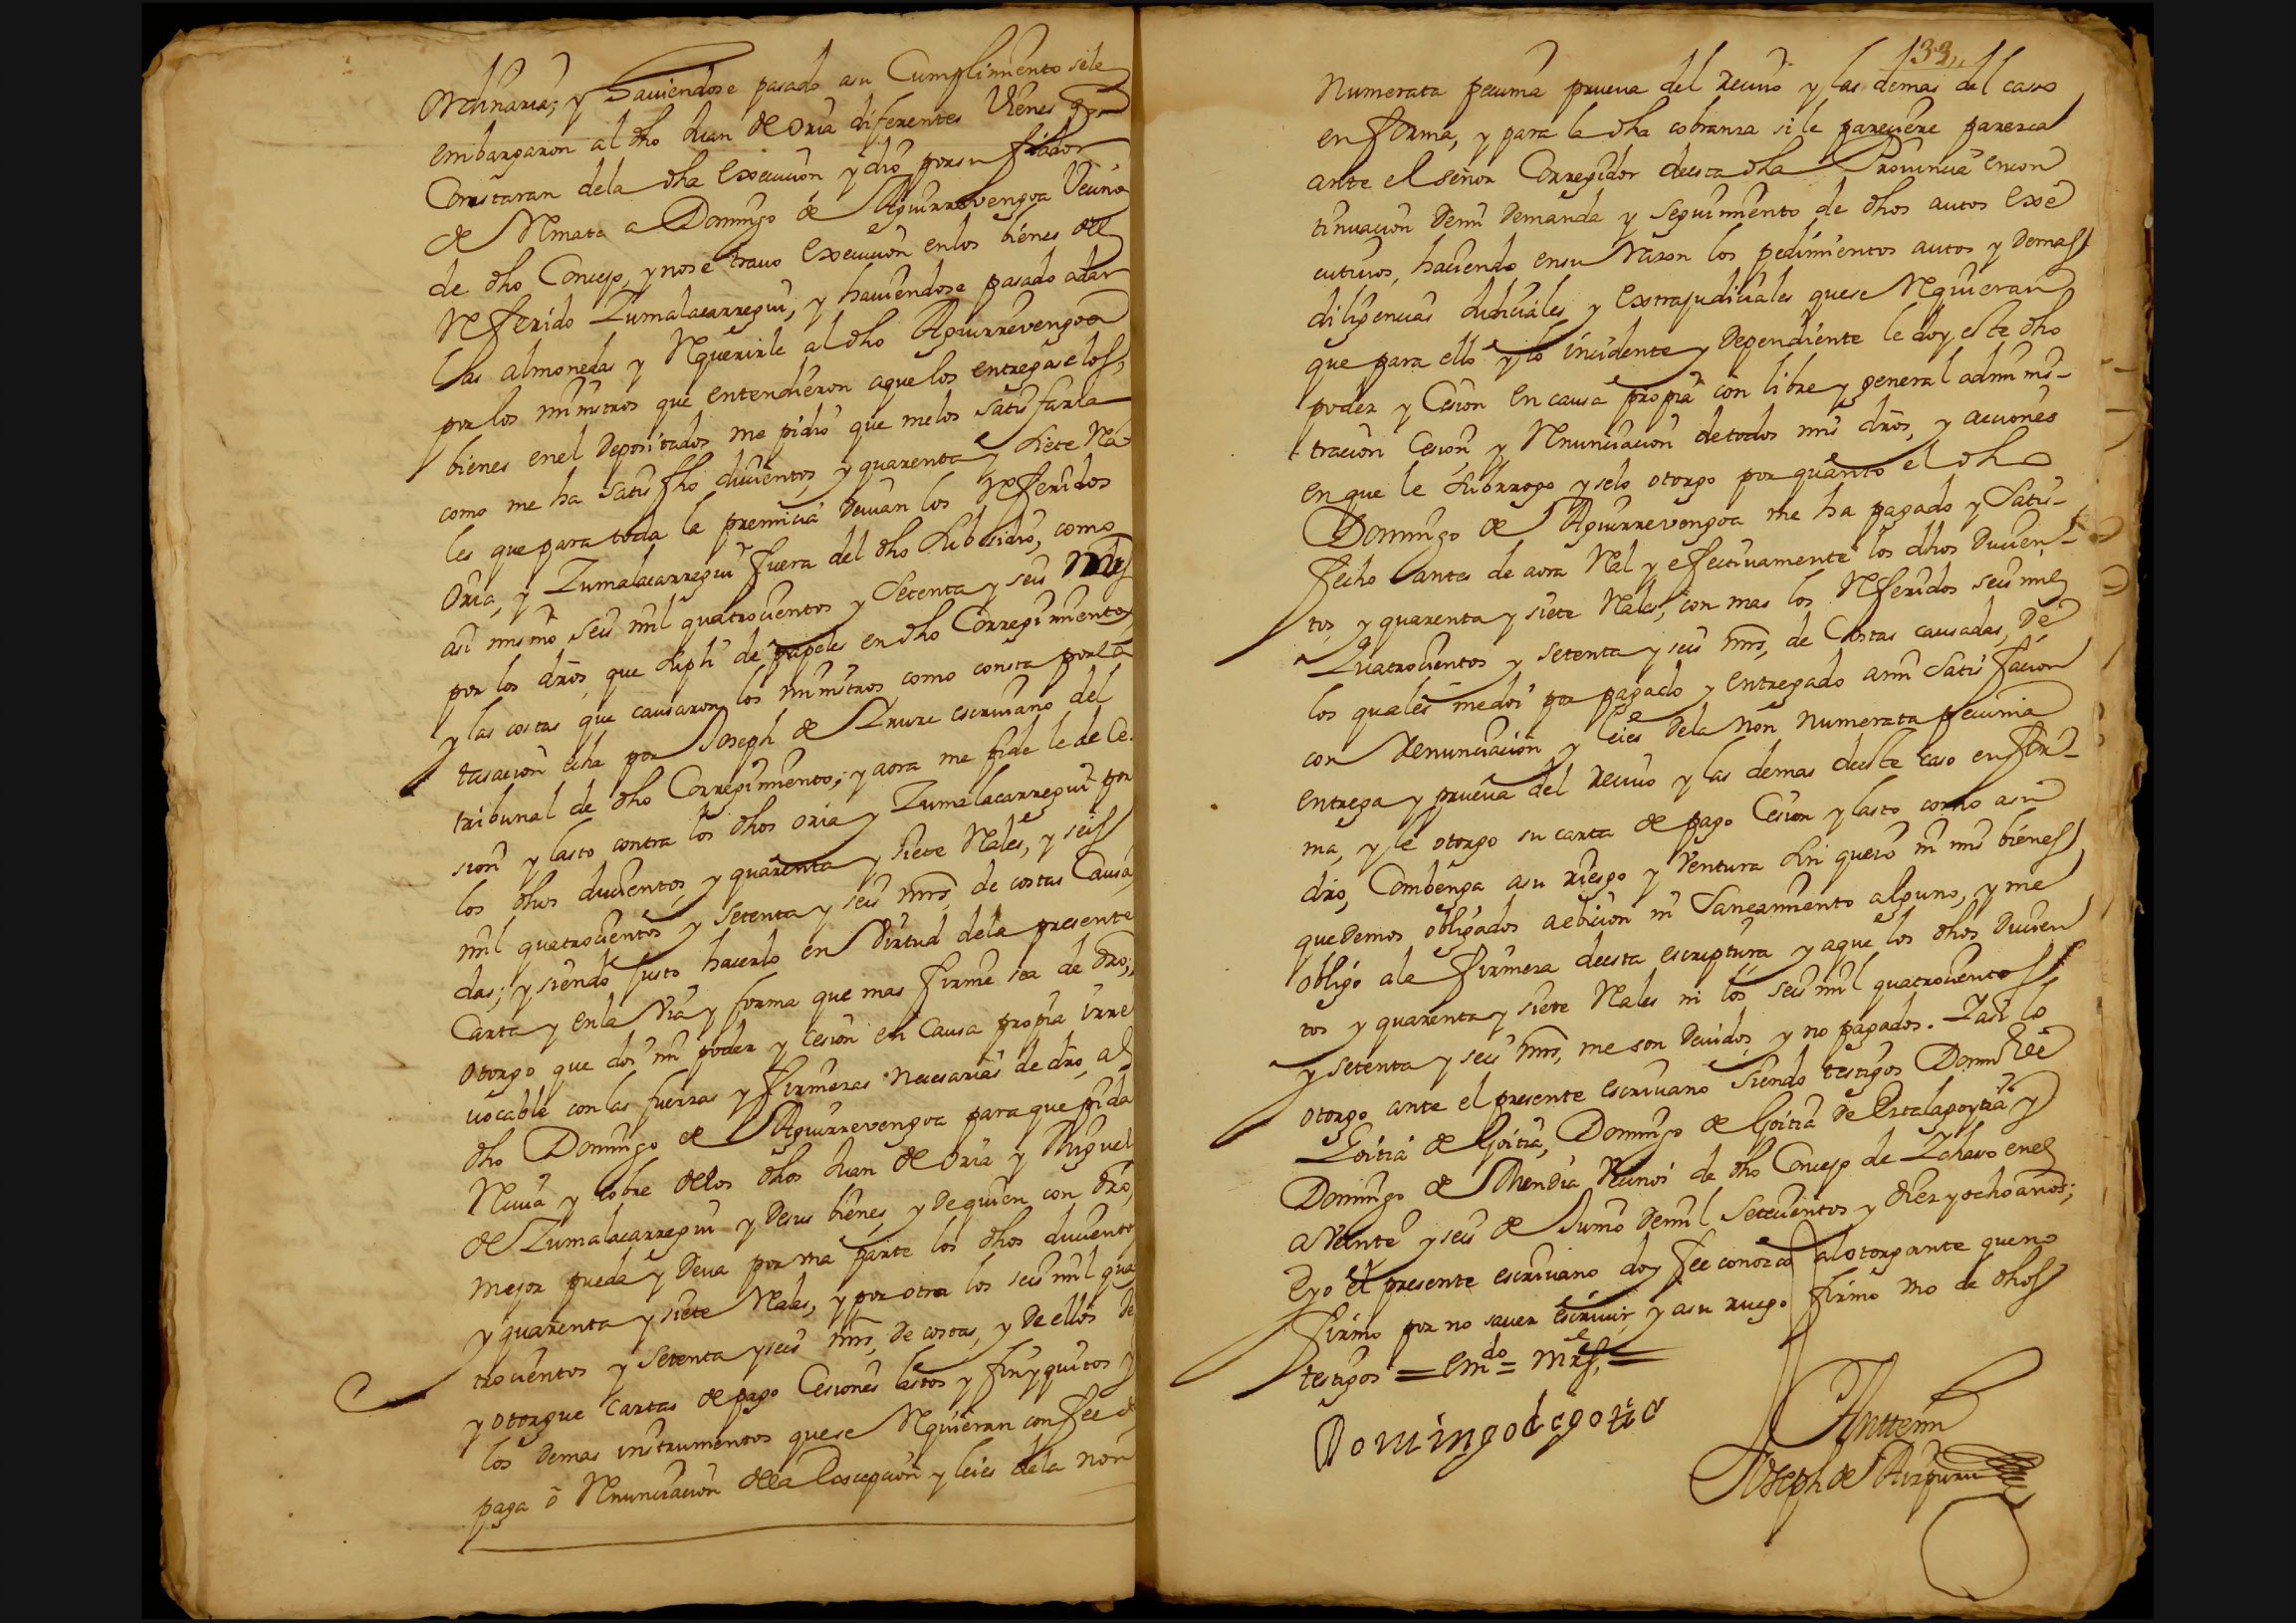 Ordinaria; y haviendose pasado asu Cumplimiento sele
embargaron al dho Juan de Oria diferentes Vienes q
Constaran dela dha Execucion, y dio porsu fiador
de Remate a Domingo de Aguirrevengoa Vecino
de dho Concejo, y nose travo Execucion enlos bienes del
Referido Zumalacarregui, y haviendose pasado adar
las almonedas y Requerirle al dho Aguirrevengoa
por los ministros que entendieron aque los entregaselos,
bienes enel Depositados me pidio que melos satisfaria
como me ha satisfho ducientos, y quarenta y siete Rea
les que para toda la premicia devian los Referidos
Oria, y Zumalacarregui fuera del dho Subsidio, como
asi mismo seis mil quatrocientos y setenta y seis mrs
por los dros, que supli de papeles en dho Corregimiento
y las costas que causaron los ministros como consta porla
tasacion echa por Joseph de Irure escrivano del
tribunal de dho Corregimiento; y aora me pide le de Ce-
sion y lasto contra los dhos Oria y Zumalacarregui por
los dhos ducientos, y quarenta y siete Reales, y seis
mil quatrocientos y setenta y seis mrs, de costas Causa
das; y siendo justo hacerlo en Virtud dela presente
Carta y enla Via y forma que mas firme sea de dro;
otorgo que doi mi poder y Cesion en Causa propia irre
vocable con las fuerzas y firmezas necesarias de dro, al
dho Domingo de Aguirrevengoa para que pida
Reciva y cobre delos dhos Juan de Oria y Miguel
de Zumalacarregui y Desus bienes, y De quien con dro,
mejor pueda y Deva por una parte los dhos ducientos
y quarenta y siete Reales, y por otra los seis mil qua
trocientos y setenta y seis mrs, de costas, y De ellos de
y otorgue Cartas de pago Cesiones lastos y finyquitos y
los Demas instrumentos quese Requieran con fee de
paga ô Renunciacion dela Excepcion y leies dela non
133,,
Numerata pecunia prueva del recivo y las demas del caso
en forma, y para la dha cobranza si le pareciere parezca
ante el señor Corregidor deesta dha Provincia encon
tinuacion Demi Demanda y seguimiento de dhos autos Exe
cutivos, haciendo ensu Razon los pedimientos autos y Demas
diligencias Judiciales y Extrajudiciales quese Requieran
que para ello y lo incidente y Dependiente le doy este dho
poder y Cesion en causa propia con libre y general adminis-
tracion Cesion y Renunciacion detodos mis dros, y acciones
en que le Subrrogo y selo otorgo por quanto el dho
Domingo de Aguirrevengoa me ha pagado y Satis-
fecho antes de aora Real y efectivamente los dhos Ducien-
tos, y quarenta y siete Reales, con mas los Referidos seis mil
quatrocientos y setenta y seis mrs, de Costas causadas, De
los quales medoi por pagado y entregado ami Satisfacion
con Renunciacion y leies Dela non numerata pecunia
entrega y prueva del recivo y las demas deeste caso en for-
ma, y le otorgo su carta de pago Cesion y lasto como asu
dro, Combenga asu riesgo y ventura sin que io ni mis bienes
quedemos obligados aebicion ni Saneamiento alguno, y me
obligo ala firmeza deesta escriptura y aque los dhos Ducien
tos y quarenta y siete Reales ni los seis mil quatrocientos
y setenta y seis mrs, me son Devidos y no pagados. Y asi lo
otorgo ante el presente escrivano siendo testigos Domin
Goitia de Goitia, Domingo de Goitia de Estalagoytia y
Domingo de Mendia Vecinos de dho Concejo de Zaharo enel
a Veinte y seis de Junio Demil Setecientos y diez y ocho años;
E yo el presente escrivano doy fee conozco al otorgante que no
firmo por no saver escrivir, y asu ruego firmo uno de dhos
testigos = Emdo = mrs, =
Domingo de goitia
Antemi
Joseph de Aizpuru